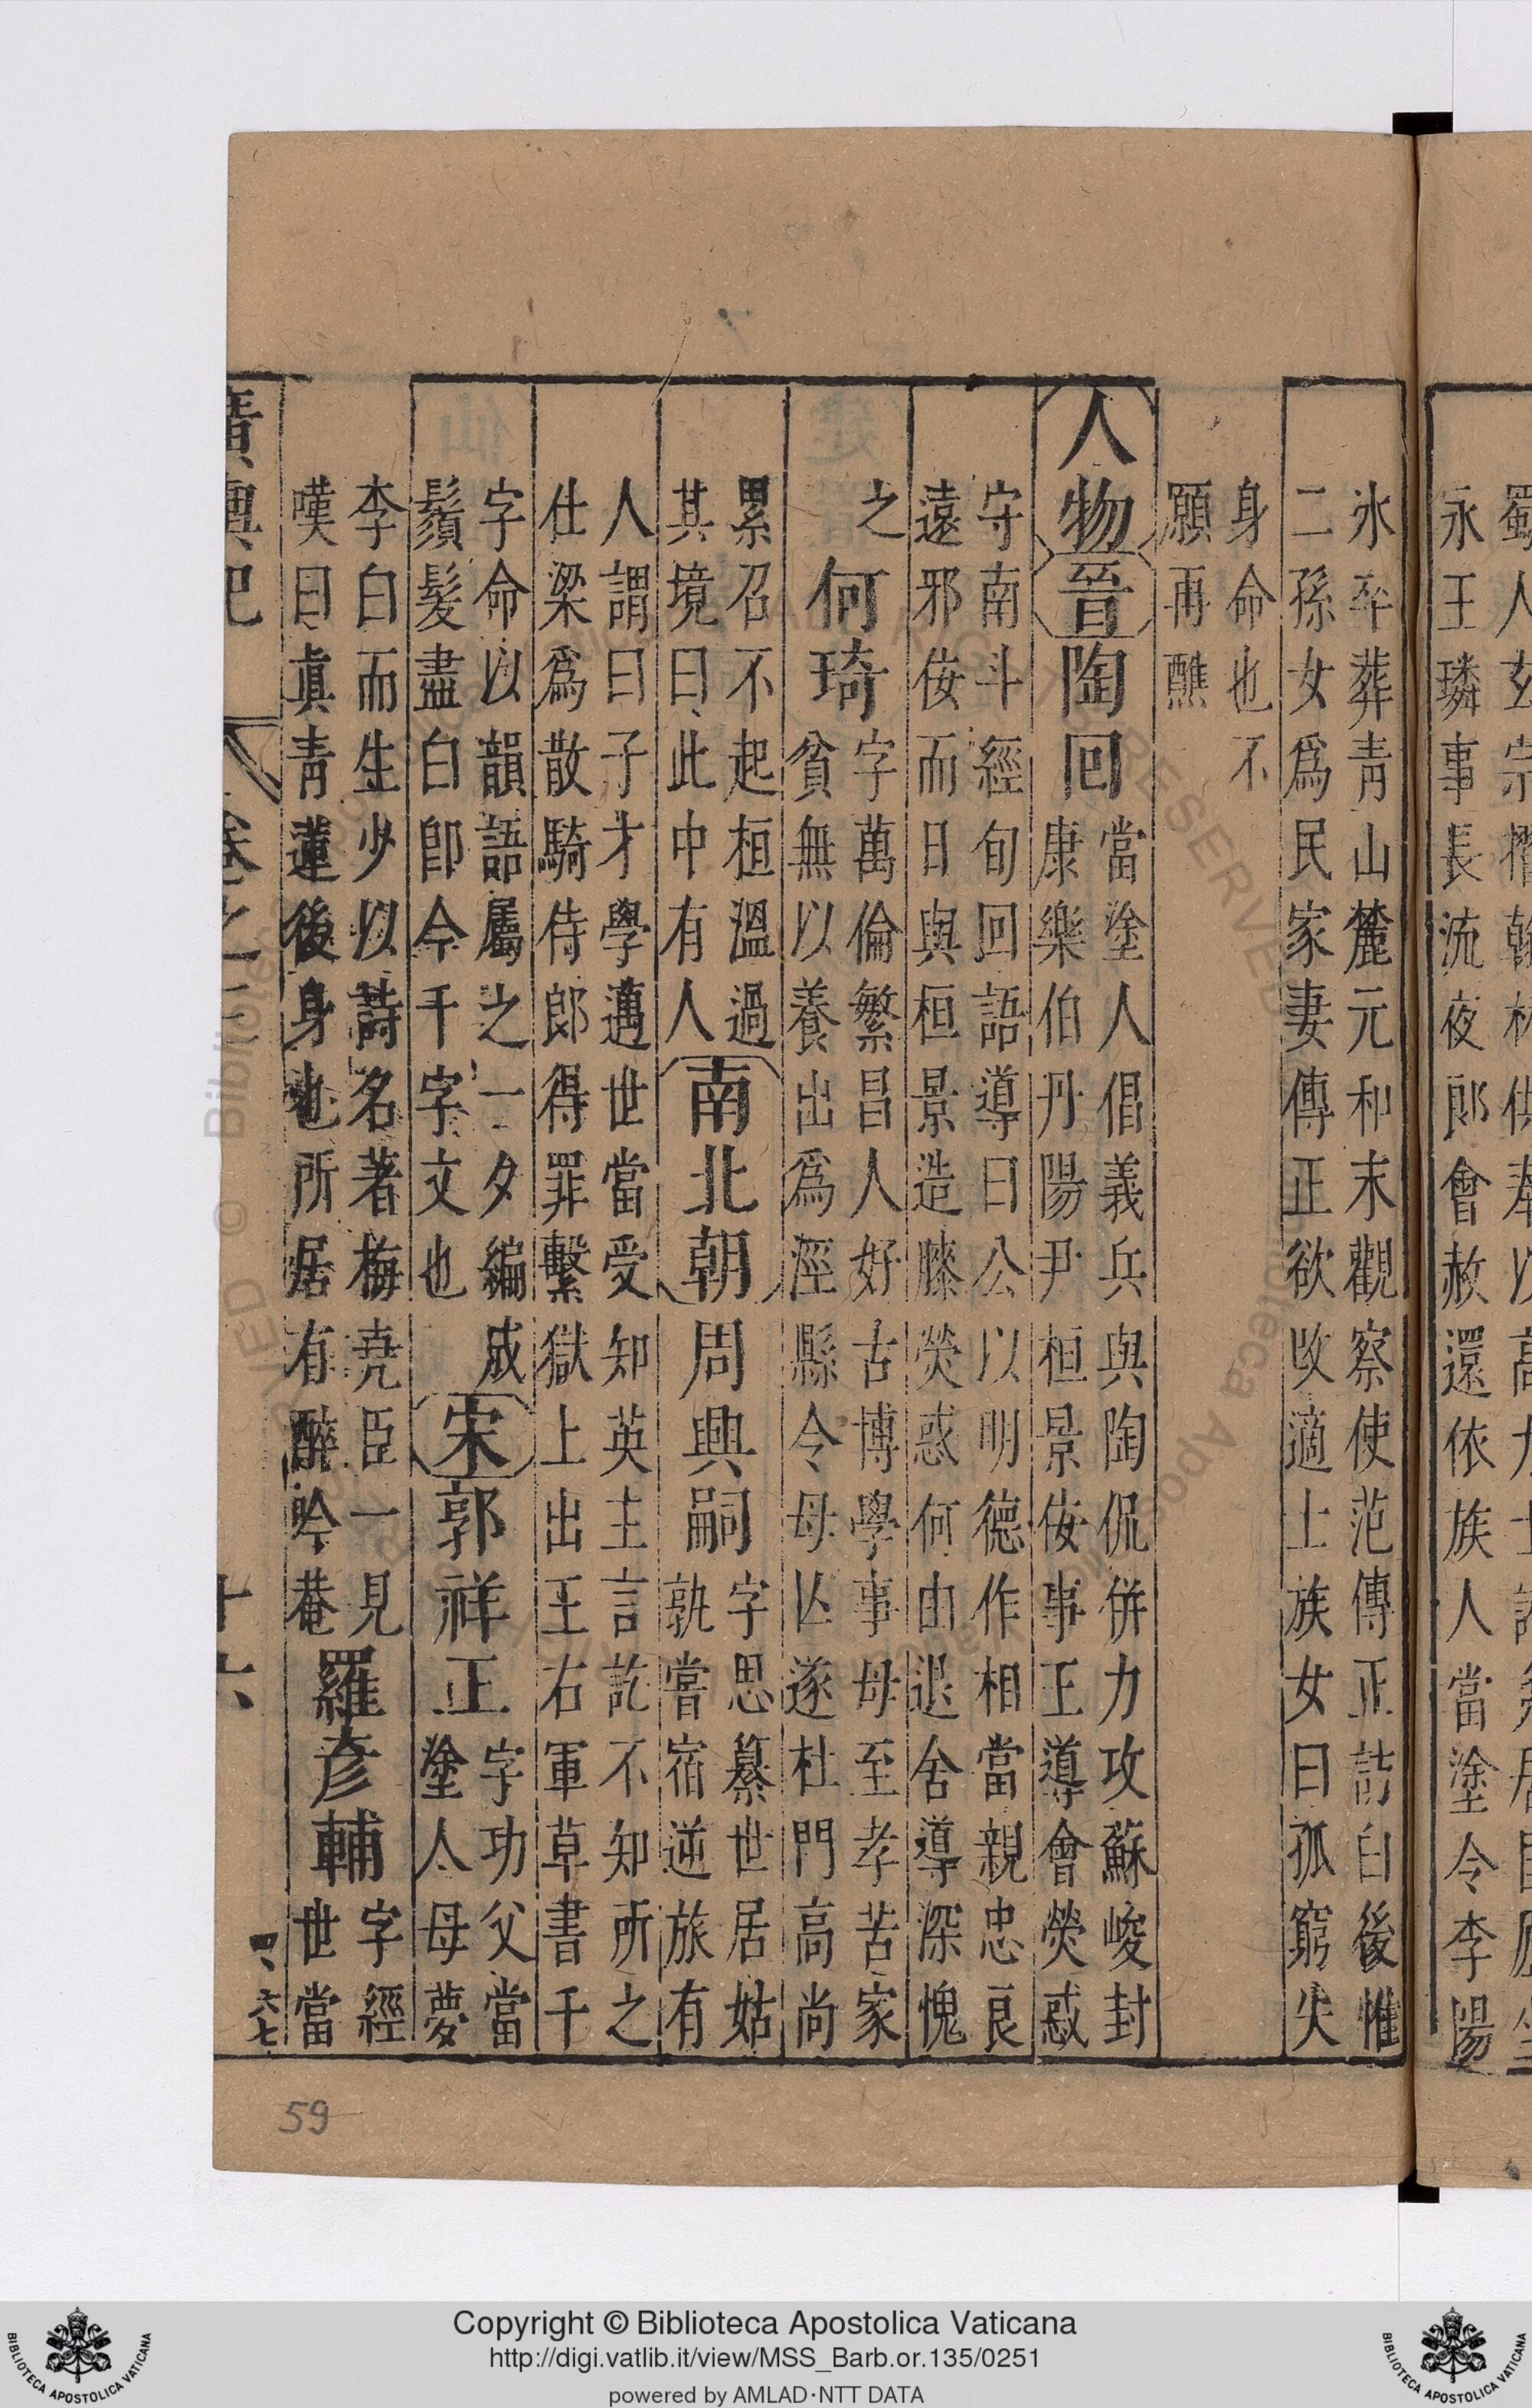 永王璘事長流夜郎會赦還依族人當塗令李陽
氷卒葬青山麓元和末觀察使范傳正訪白後惟
二孫女爲民家妻傳正欲改適士族女曰孤窮失
身命也不
願再醮
人物晉陶回
當塗人倡義兵與陶侃併力攻蘇峻封
康樂伯丹陽尹桓景佞事王導會熒惑
守南斗經旬回語導曰公以明德作相當親忠良
遠邪佞而日與桓景造膝熒惑何由退舍導深愧
之
何琦
字萬倫繁昌人好古博學事母至孝苦家
貧無以養出爲涇縣令母亾遂杜門高尚
累召不起桓溫過
其境曰此中有人
南北朝周興嗣
字思纂世居姑
孰嘗宿逆旅有
人謂曰子才學邁世當受知英主言訖不知所之
仕梁爲散騎侍郎得罪繫獄上出王右軍草書千
字命以韻語屬之一夕編成
鬚髮盡白卽今千字文也
宋郭祥正
字功父當
塗人母夢
李白而生少以詩名著梅堯臣一見
嘆曰眞青蓮後身也所居有醉吟菴
羅彥輔
字經
世當
廣輿記 卷之二 十六
59
Copyright © Biblioteca Apostolica Vaticana
http://digi.vatlib.it/view/MSS_Barb.or.135/0251
powered by AMLAD·NTT DATA
BIBLIOTECA APOSTOLICA VATICANA
BIBLIOTECA APOSTOLICA VATICANA